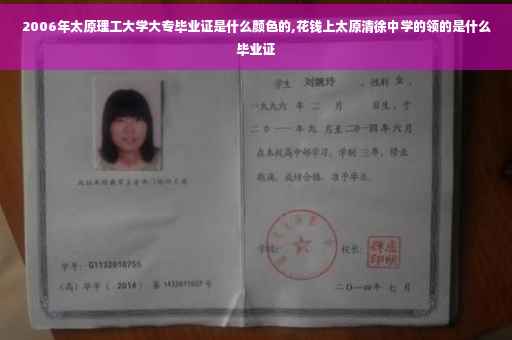 2006年太原理工大学大专毕业证是什么颜色的,花钱上太原清徐中学的领的是什么
毕业证
学生 刘婉玲 ,性别 女 ,
一九九六 年 二 月 日生,于
二〇一一年 九 月至二〇一四年 六 月
在本校高中部学习,学制 三年,修业
期满,成绩合格,准予毕业。
学号: G1132010755
(高)毕字( 2014 )第 1432011007 号
学校:
校长:
二〇一四年 七 月